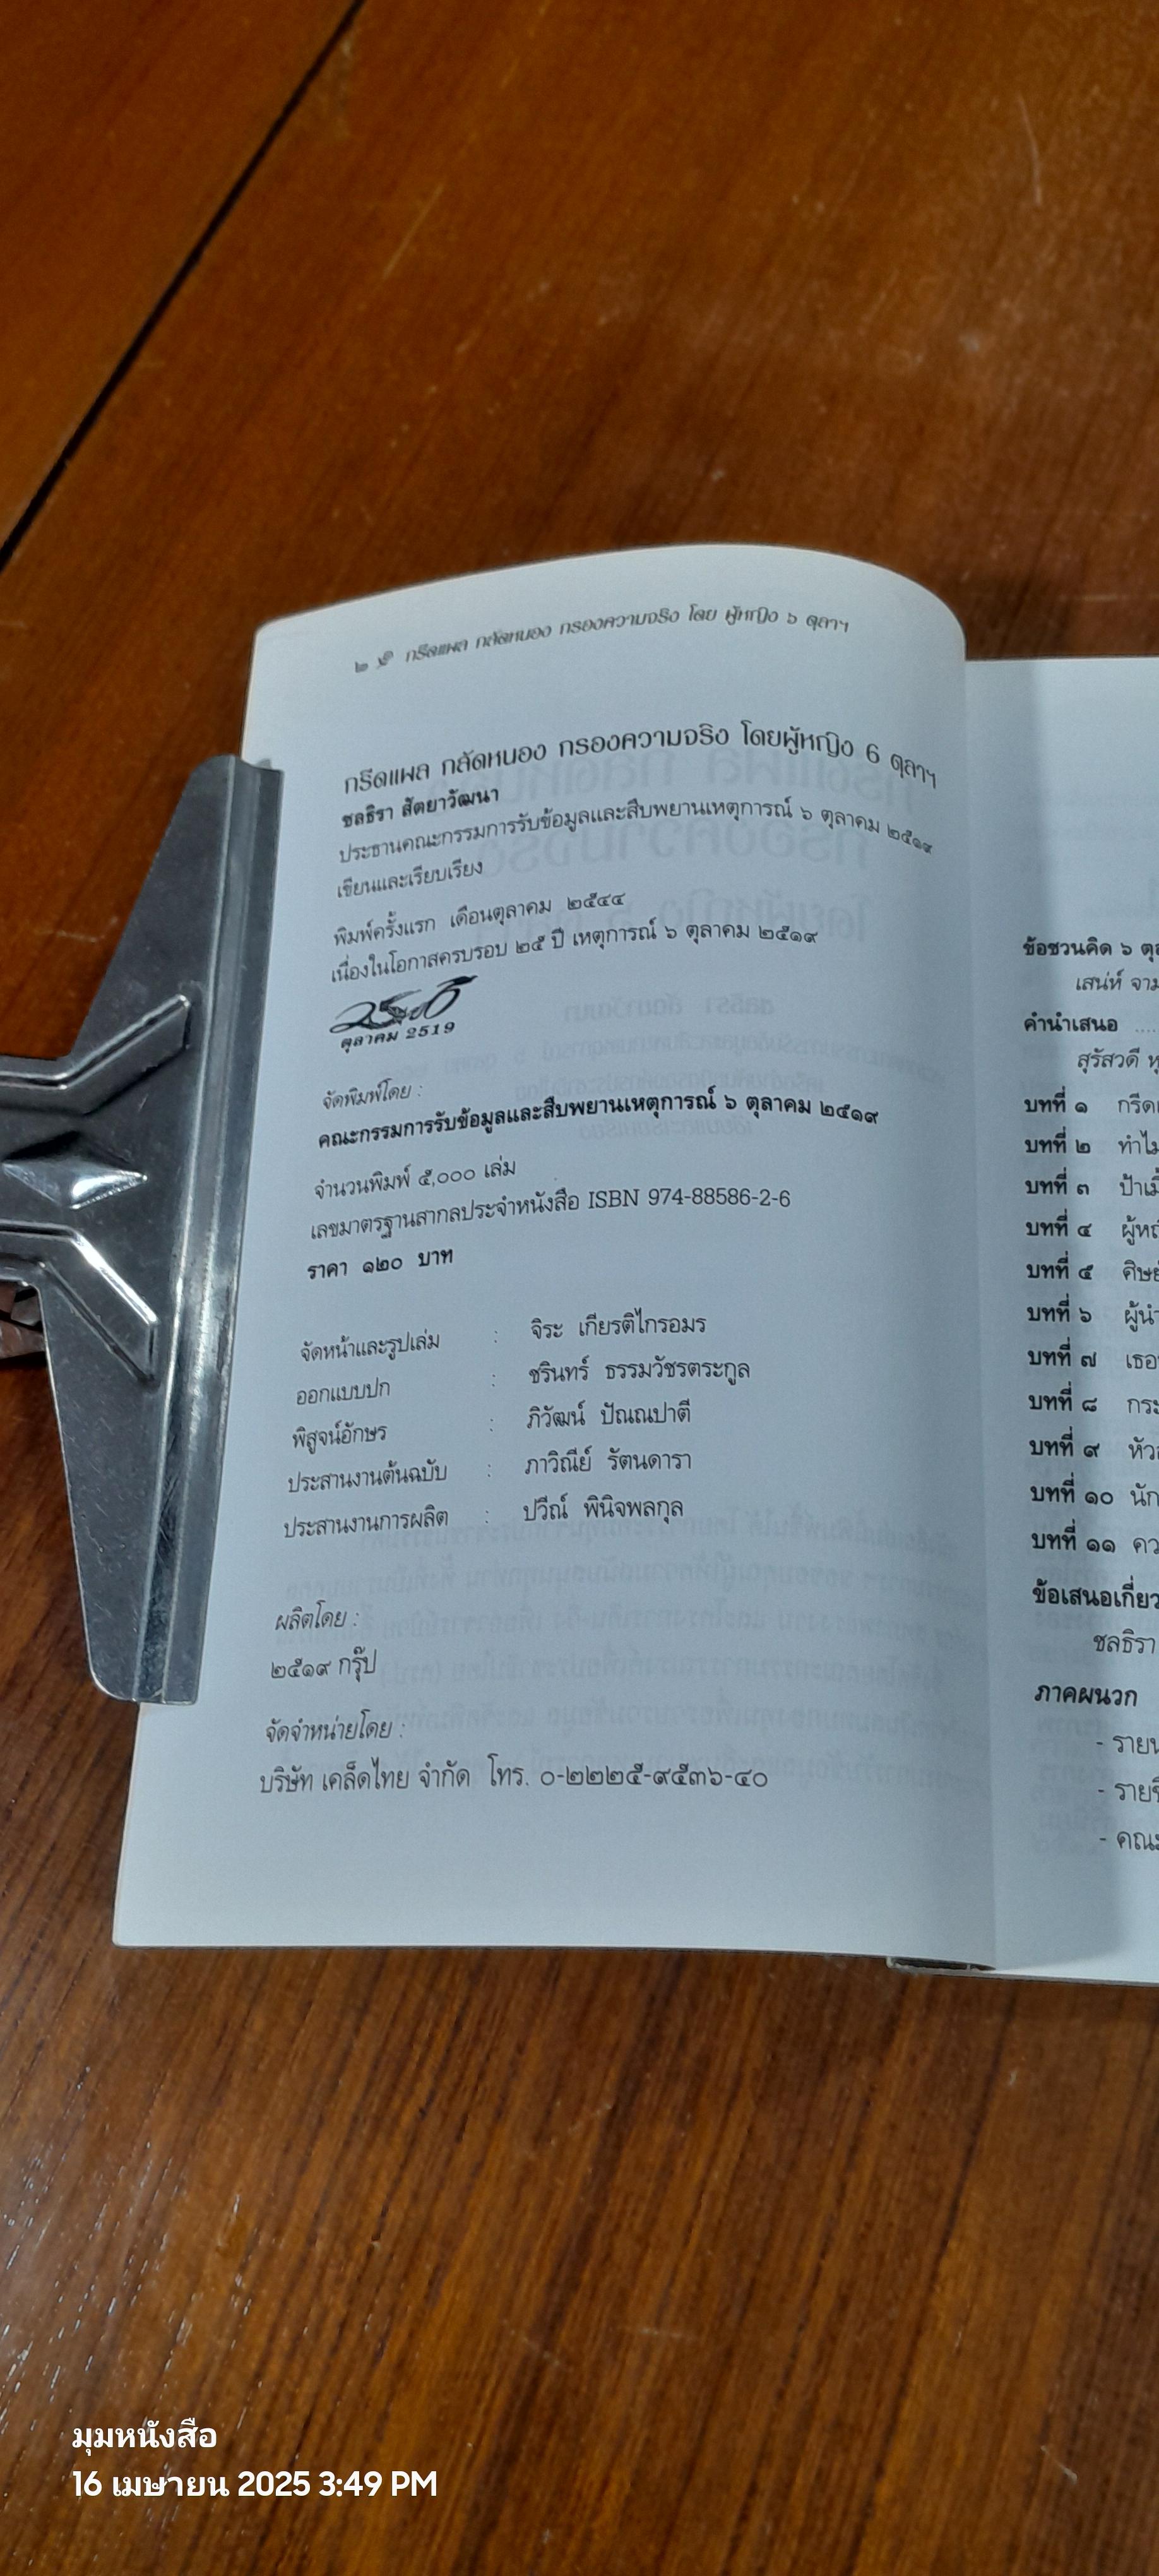 ๒ กรีดแผล กลัดหนอง กรองความจริง โดย ผู้หญิง ๖ ตุลาฯ
กรีดแผล กลัดหนอง กรองความจริง โดยผู้หญิง 6 ตุลาฯ
ชลธิรา สัตยาวัฒนา
ประธานคณะกรรมการรับข้อมูลและสืบพยานเหตุการณ์ ๖ ตุลาคม ๒๕๑๙
เขียนและเรียบเรียง
พิมพ์ครั้งแรก เดือนตุลาคม ๒๕๔๔
เนื่องในโอกาสครบรอบ ๒๕ ปี เหตุการณ์ ๖ ตุลาคม ๒๕๑๙
ตุลาคม 2519
จัดพิมพ์โดย :
คณะกรรมการรับข้อมูลและสืบพยานเหตุการณ์ ๖ ตุลาคม ๒๕๑๙
จำนวนพิมพ์ ๕,๐๐๐ เล่ม
เลขมาตรฐานสากลประจำหนังสือ ISBN 974-88586-2-6
ราคา ๑๒๐ บาท
จัดหน้าและรูปเล่ม : จิระ เกียรติไกรอมร
ออกแบบปก : ชรินทร์ ธรรมวัชรตระกูล
พิสูจน์อักษร : ภิวัฒน์ ปัณณปาตี
ประสานงานต้นฉบับ : ภาวิณีย์ รัตนดารา
ประสานงานการผลิต : ปวีณ์ พินิจพลกุล
ผลิตโดย :
๒๕๑๙ กรุ๊ป
จัดจำหน่ายโดย :
บริษัท เคล็ดไทย จำกัด โทร. ๐-๒๒๒๕-๙๕๓๖-๔๐
ข้อชวนคิด ๖
เสน่ห์
คำนำเสนอ ....
สุรัสวดี
บทที่ ๑
บทที่ ๒
บทที่ ๓
บทที่ ๔
บทที่ ๕
บทที่ ๖
บทที่ ๗
บทที่ ๘
บทที่ ๙
บทที่ ๑๐
บทที่ ๑๑
ชลธิรา
ภาคผนวก
มุมหนังสือ
16 เมษายน 2025 3:49 PM